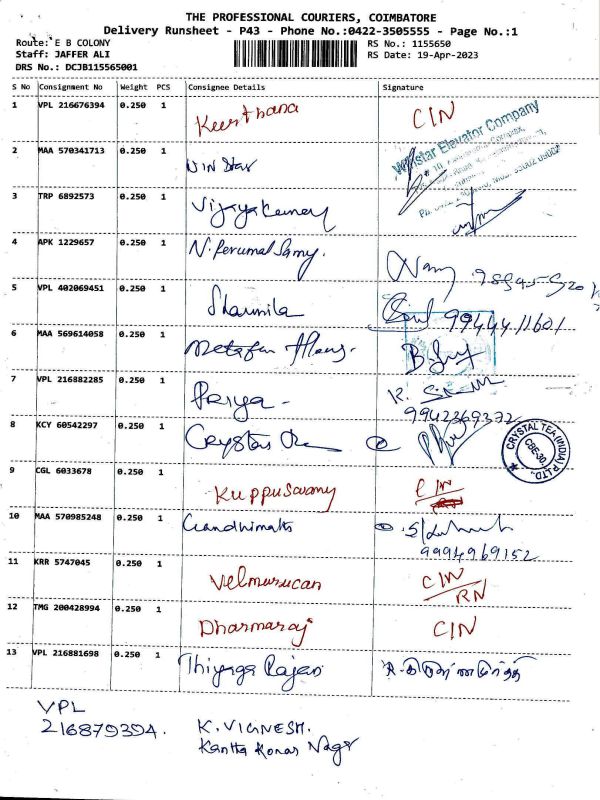 THE PROFESSIONAL COURIERS, COIMBATORE
Delivery Runsheet - P43 - Phone No.:0422-3505555 - Page No.:1
Route: E B COLONY RS No.: 1155650
Staff: JAFFER ALI RS Date: 19-Apr-2023
DRS No.: DCJB115565001
S No Consignment No Weight PCS Consignee Details Signature
1 VPL 216676394 0.250 1 Keerthana CIN
Winstar Elevator Company
2 MAA 570341713 0.250 1 Win Star
3 TRP 6892573 0.250 1 Vijayakumar
4 APK 1229657 0.250 1 N. Perumal Samy.
5 VPL 402069451 0.250 1 Sharmila 9944411601
6 MAA 569614058 0.250 1
7 VPL 216882285 0.250 1 Priya
9942369372
8 KCY 60542297 0.250 1 Crystal
CRYSTAL TEA (INDIA) P. LTD.
CBE-30.
9 CGL 6033678 0.250 1 Kuppuswamy CIN
10 MAA 570985248 0.250 1 Gandhimathi
9994969152
11 KRR 5747045 0.250 1 Velmurugan CIN
RN
12 TMG 200428994 0.250 1 Dharmaraj CIN
13 VPL 216881698 0.250 1 Thiyaga Rajan
VPL
216879394. K. VIGNESH.
Kantha Konar Nagar